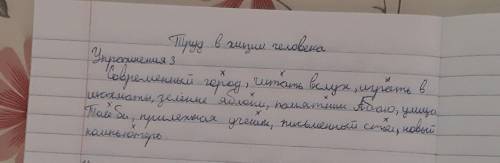 Труд в жизни человека
Упражнения 3
Современный город, читать вслух, играть в
шахматы, зелёные яблоки, памятник Абаю, улица
Толе би, прилежная ученик, письменный стол, новый
компьютер.